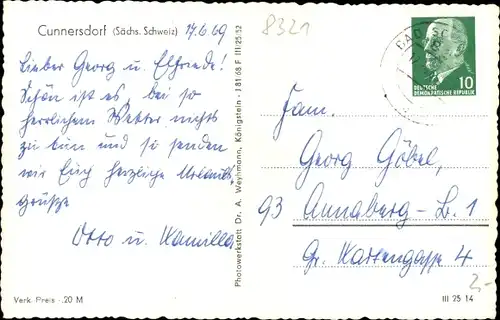 Cunnersdorf (Sächs. Schweiz) 17.6.69
8321
Lieber Georg u. Elfriede!
Schön ist es, bei so
herrlichem Wetter nichts
zu tun und so senden
wir Euch herzliche Urlaubs-
grüße
Otto u. Kamilla
Photowerkstätt Dr. A. Weyhmann, Königstein - J 81/68 F III 25 12
BAD
10
DEUTSCHE
DEMOKRATISCHE REPUBLIK
Fam.
Georg Göbel,
93 Annaberg-B. 1
Gr. Kartengasse 4
2,-
Verk. Preis -,20 M
III 25 14